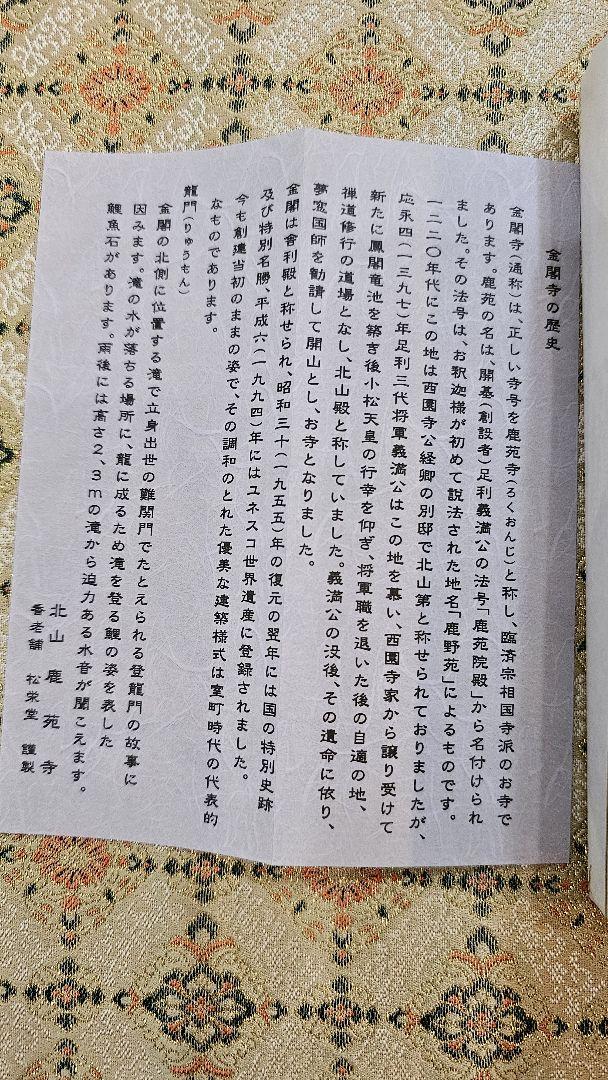 金閣寺の歴史
金閣寺(通称)は、正しい寺号を鹿苑寺(ろくおんじ)と称し、臨済宗相国寺派のお寺で
あります。鹿苑の名は、開基(創設者)足利義満公の法号「鹿苑院殿」から名付けられ
ました。その法号は、お釈迦様が初めて説法された地名「鹿野苑」によるものです。
一二二〇年代にこの地は西園寺公経卿の別邸で北山第と称せられておりましたが、
応永四(一三九七)年足利三代将軍義満公はこの地を慕い、西園寺家から譲り受けて
新たに鳳閣竜池を築き後小松天皇の行幸を仰ぎ、将軍職を退いた後の自適の地、
禅道修行の道場となし、北山殿と称していました。義満公の没後、その遺命に依り、
夢窓国師を勧請して開山とし、お寺となりました。
金閣は舎利殿と称せられ、昭和三十(一九五五)年の復元の翌年には国の特別史跡
及び特別名勝、平成六(一九九四)年にはユネスコ世界遺産に登録されました。
今も創建当初のままの姿で、その調和のとれた優美な建築様式は室町時代の代表的
なものであります。
龍門(りゅうもん)
金閣の北側に位置する滝で立身出世の難関門でたとえられる登龍門の故事に
因みます。滝の水が落ちる場所に、龍に成るため滝を登る鯉の姿を表した
鯉魚石があります。雨後には高さ2、3mの滝から迫力ある水音が聞こえます。
北山鹿苑寺
香老舗 松栄堂 謹製